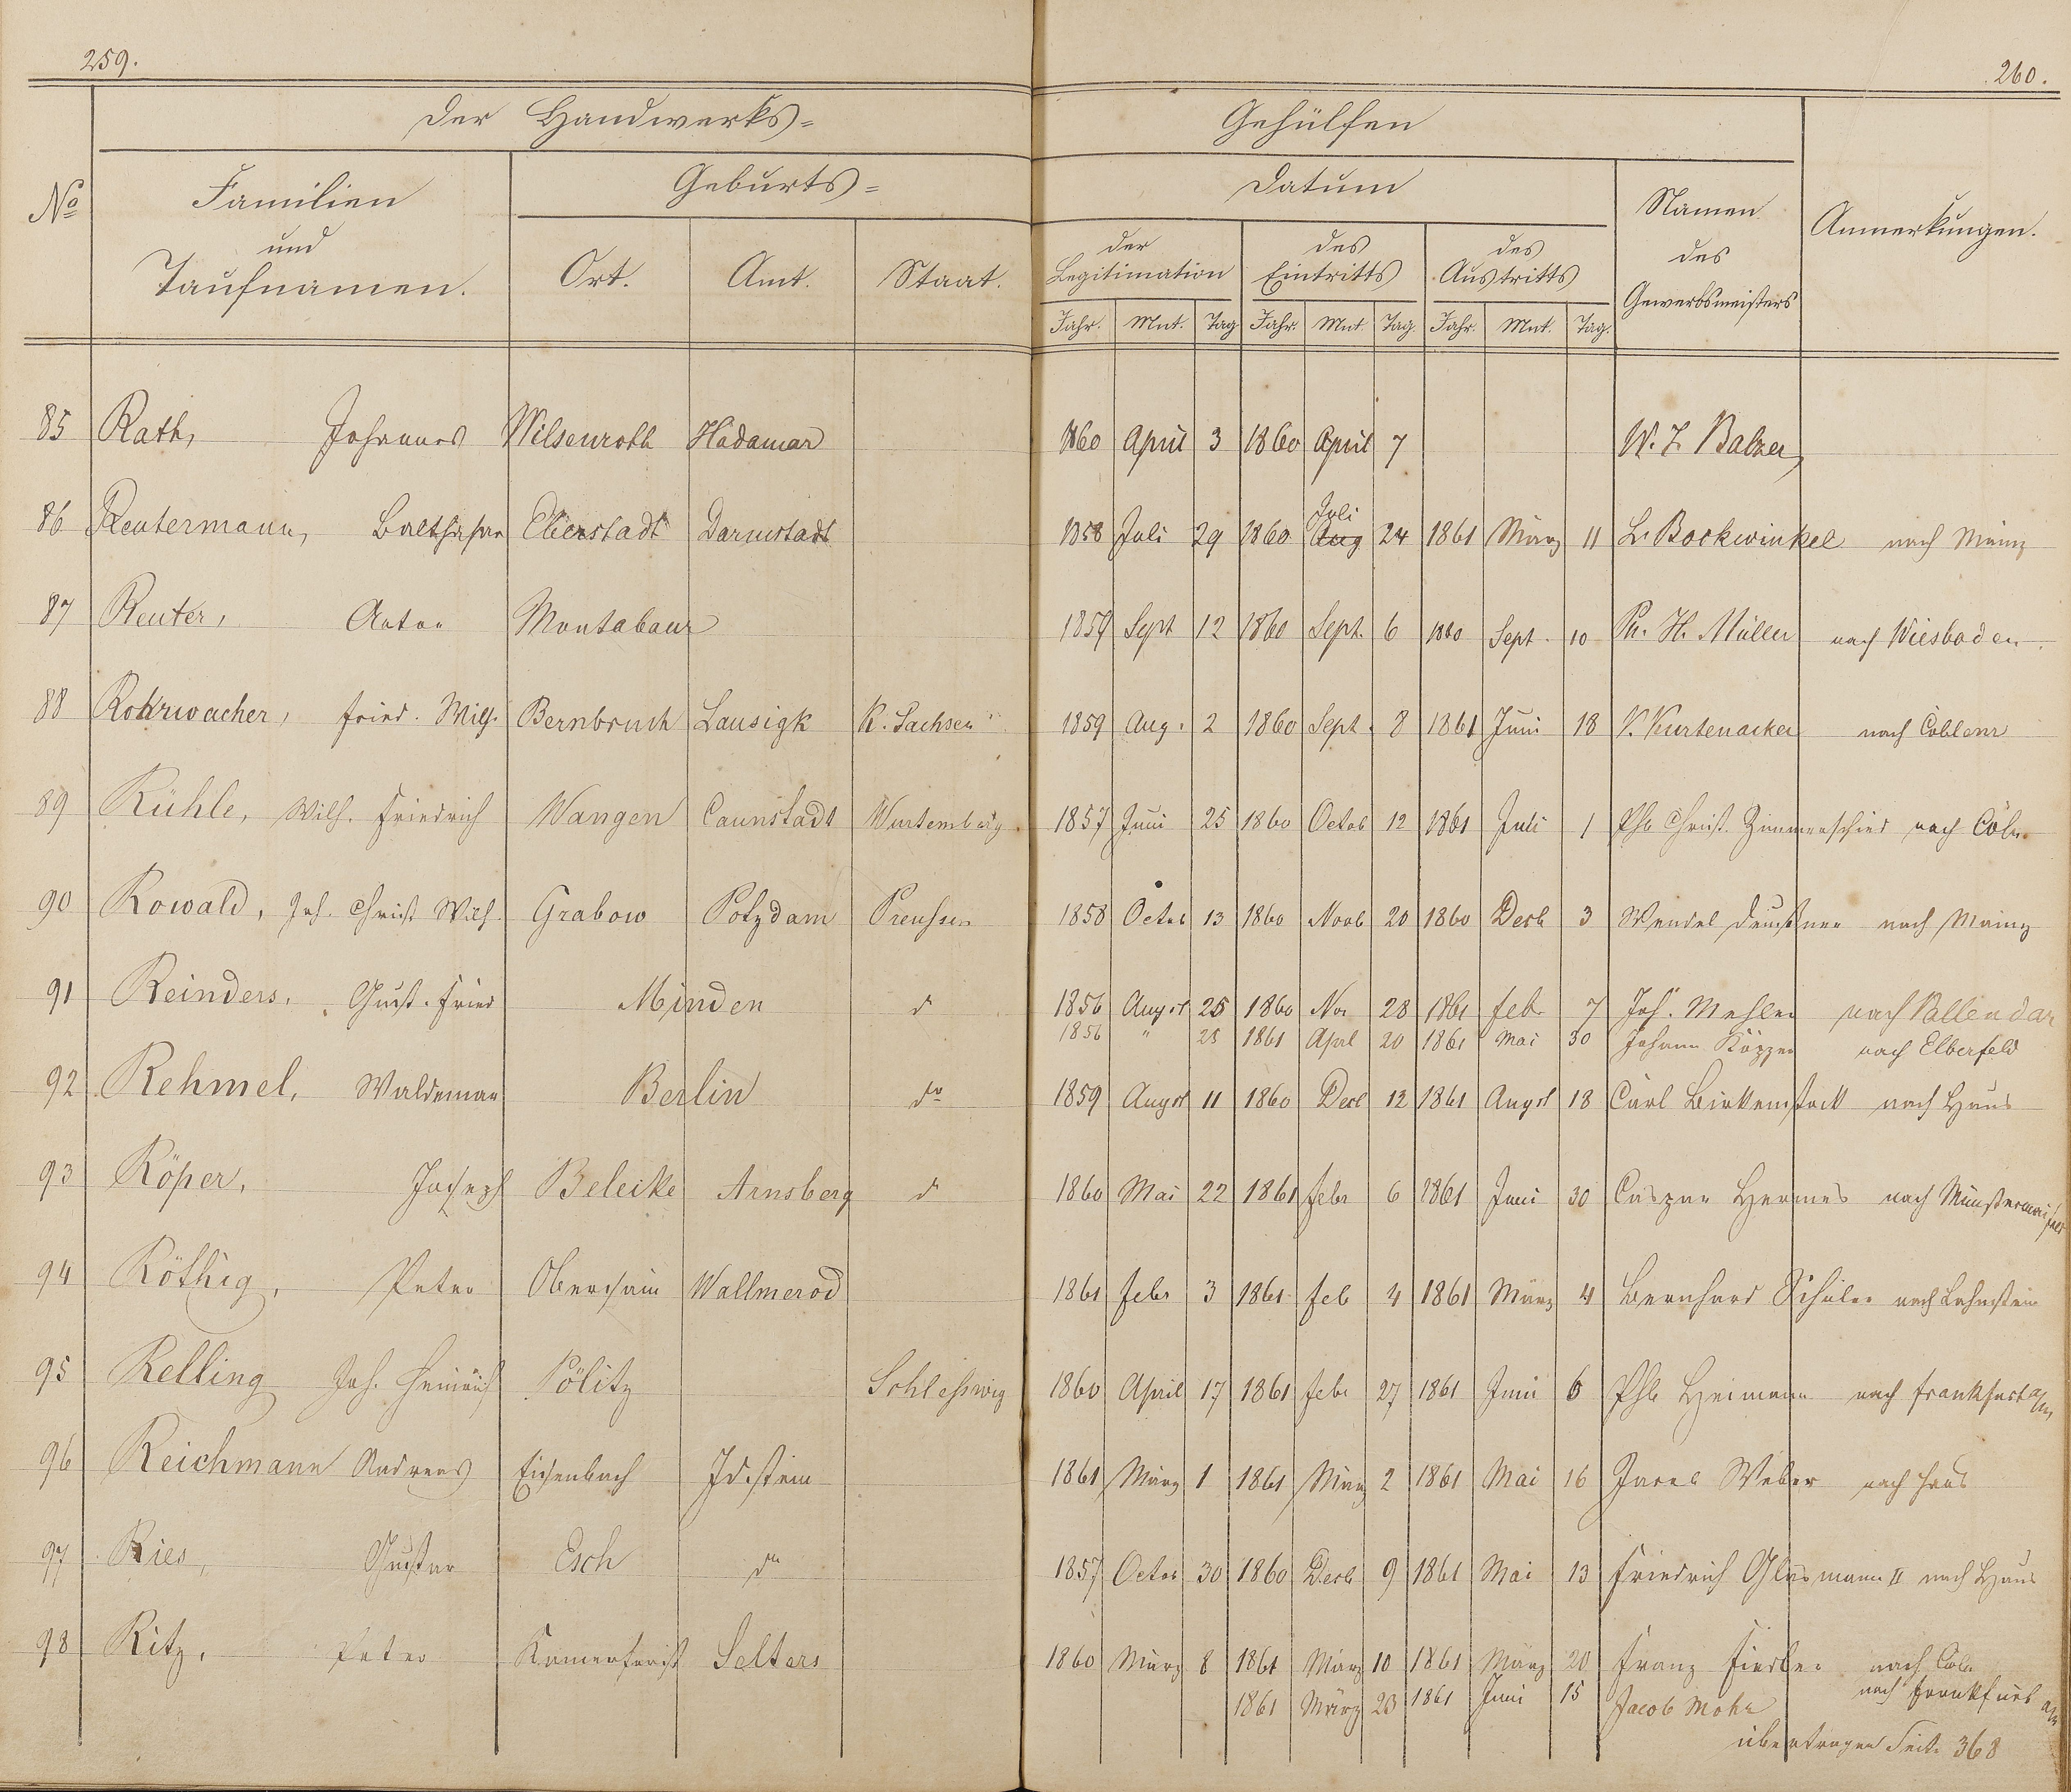 259.
260.
Der Handwerks=
Gehülfen
No
Familien
und
Taufnamen.
Geburts=
Ort.
Amt.
Staat.
Datum
der
Legitimation
des
Eintritts
des
Austritts
Namen
des
Gewerbsmeisters
Anmerkungen.
Jahr. Mnt. Tag Jahr. Mnt. Tag. Jahr. Mnt. Tag.
85 Rath, Johannes Wilsenroth Hadamar 1860 April 3 1860 April 7 W. Z. Balzer
Juli
86 Reutermann, Balthasar Eberstadt Darmstadt 1858 Juli 29 1860 Aug 24 1861 März 11 L. Bockwinkel nach Mainz
87 Reuter, Anton Montabaur 1859 Sept 12 1860 Sept. 6 1860 Sept. 10 Ph. H. Müller nach Wiesbaden.
88 Rohrwacher, Fried. Wilh. Bernbruch Lausigk K. Sachsen 1859 Aug. 2 1860 Sept. 8 1861 Juni 18 V. Kurtenacker nach Coblenz
89 Rühle, Wilh. Friedrich Wangen Cannstadt Wurtemberg 1857 Juni 25 1860 Octob 12 1861 Juli 1 Phl Christ. Zimmerschied nach Cöln
90 Rowald, Joh. Christ Wilh. Grabow Potzdam Preußen 1858 Octob 13 1860 Novb 20 1860 Decb 3 Wendel nach Mainz
91 Reinders, Gust. Fried Minden d 1856 Augst 25 1860 Nov 28 1861 Febr 7 Joh. Mehler nach Vallendar
1856 " 25 1861 Aprl 20 1861 Mai 30 Johann Köpper nach Elberfeld
92 Rehmel, Waldemar Berlin do 1859 Augst 11 1860 Decb 12 1861 Augst 18 Carl Birkenstock nach Haus
93 Röper, Joseph Belecke Arnsberg d 1860 Mai 22 1861 Febr 6 1861 Juni 30 Caspar Hermes nach Münstermaifeld
94 Röthig, Peter Oberhain Wallmerod 1861 Febr 3 1861 Feb 4 1861 März 4 Bernhard Schüler nach Lahnstein
95 Relling Joh. Heinrich Pölitz Schleßwig 1860 April 17 1861 Febr 27 1861 Juni 6 Phl Heimann nach Frankfurt a/m
96 Reichmann Andreas Eisenbach Idstein 1861 März 1 1861 März 2 1861 Mai 16 Jacob Weber nach Haus
97 Ries, Gustav Esch do 1857 Octob 30 1860 Decb 9 1861 Mai 13 Friedrich Glasmann II nach Haus
98 Ritz, Peter Selters 1860 März 8 1861 März 10 1861 März 20 Franz Fiedler nach Cöln
1861 März 23 1861 Juni 15 Jacob Mohr nach Frankfurt a/m
übertragen Seite 368